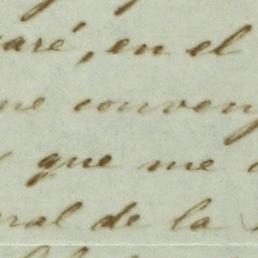 aré, en el
ne conveng
que me
ral de la